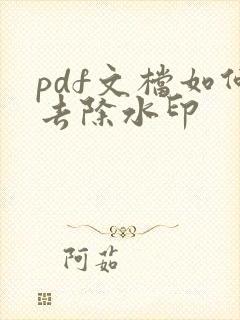 pdf文檔如何
去除水印
阿茹